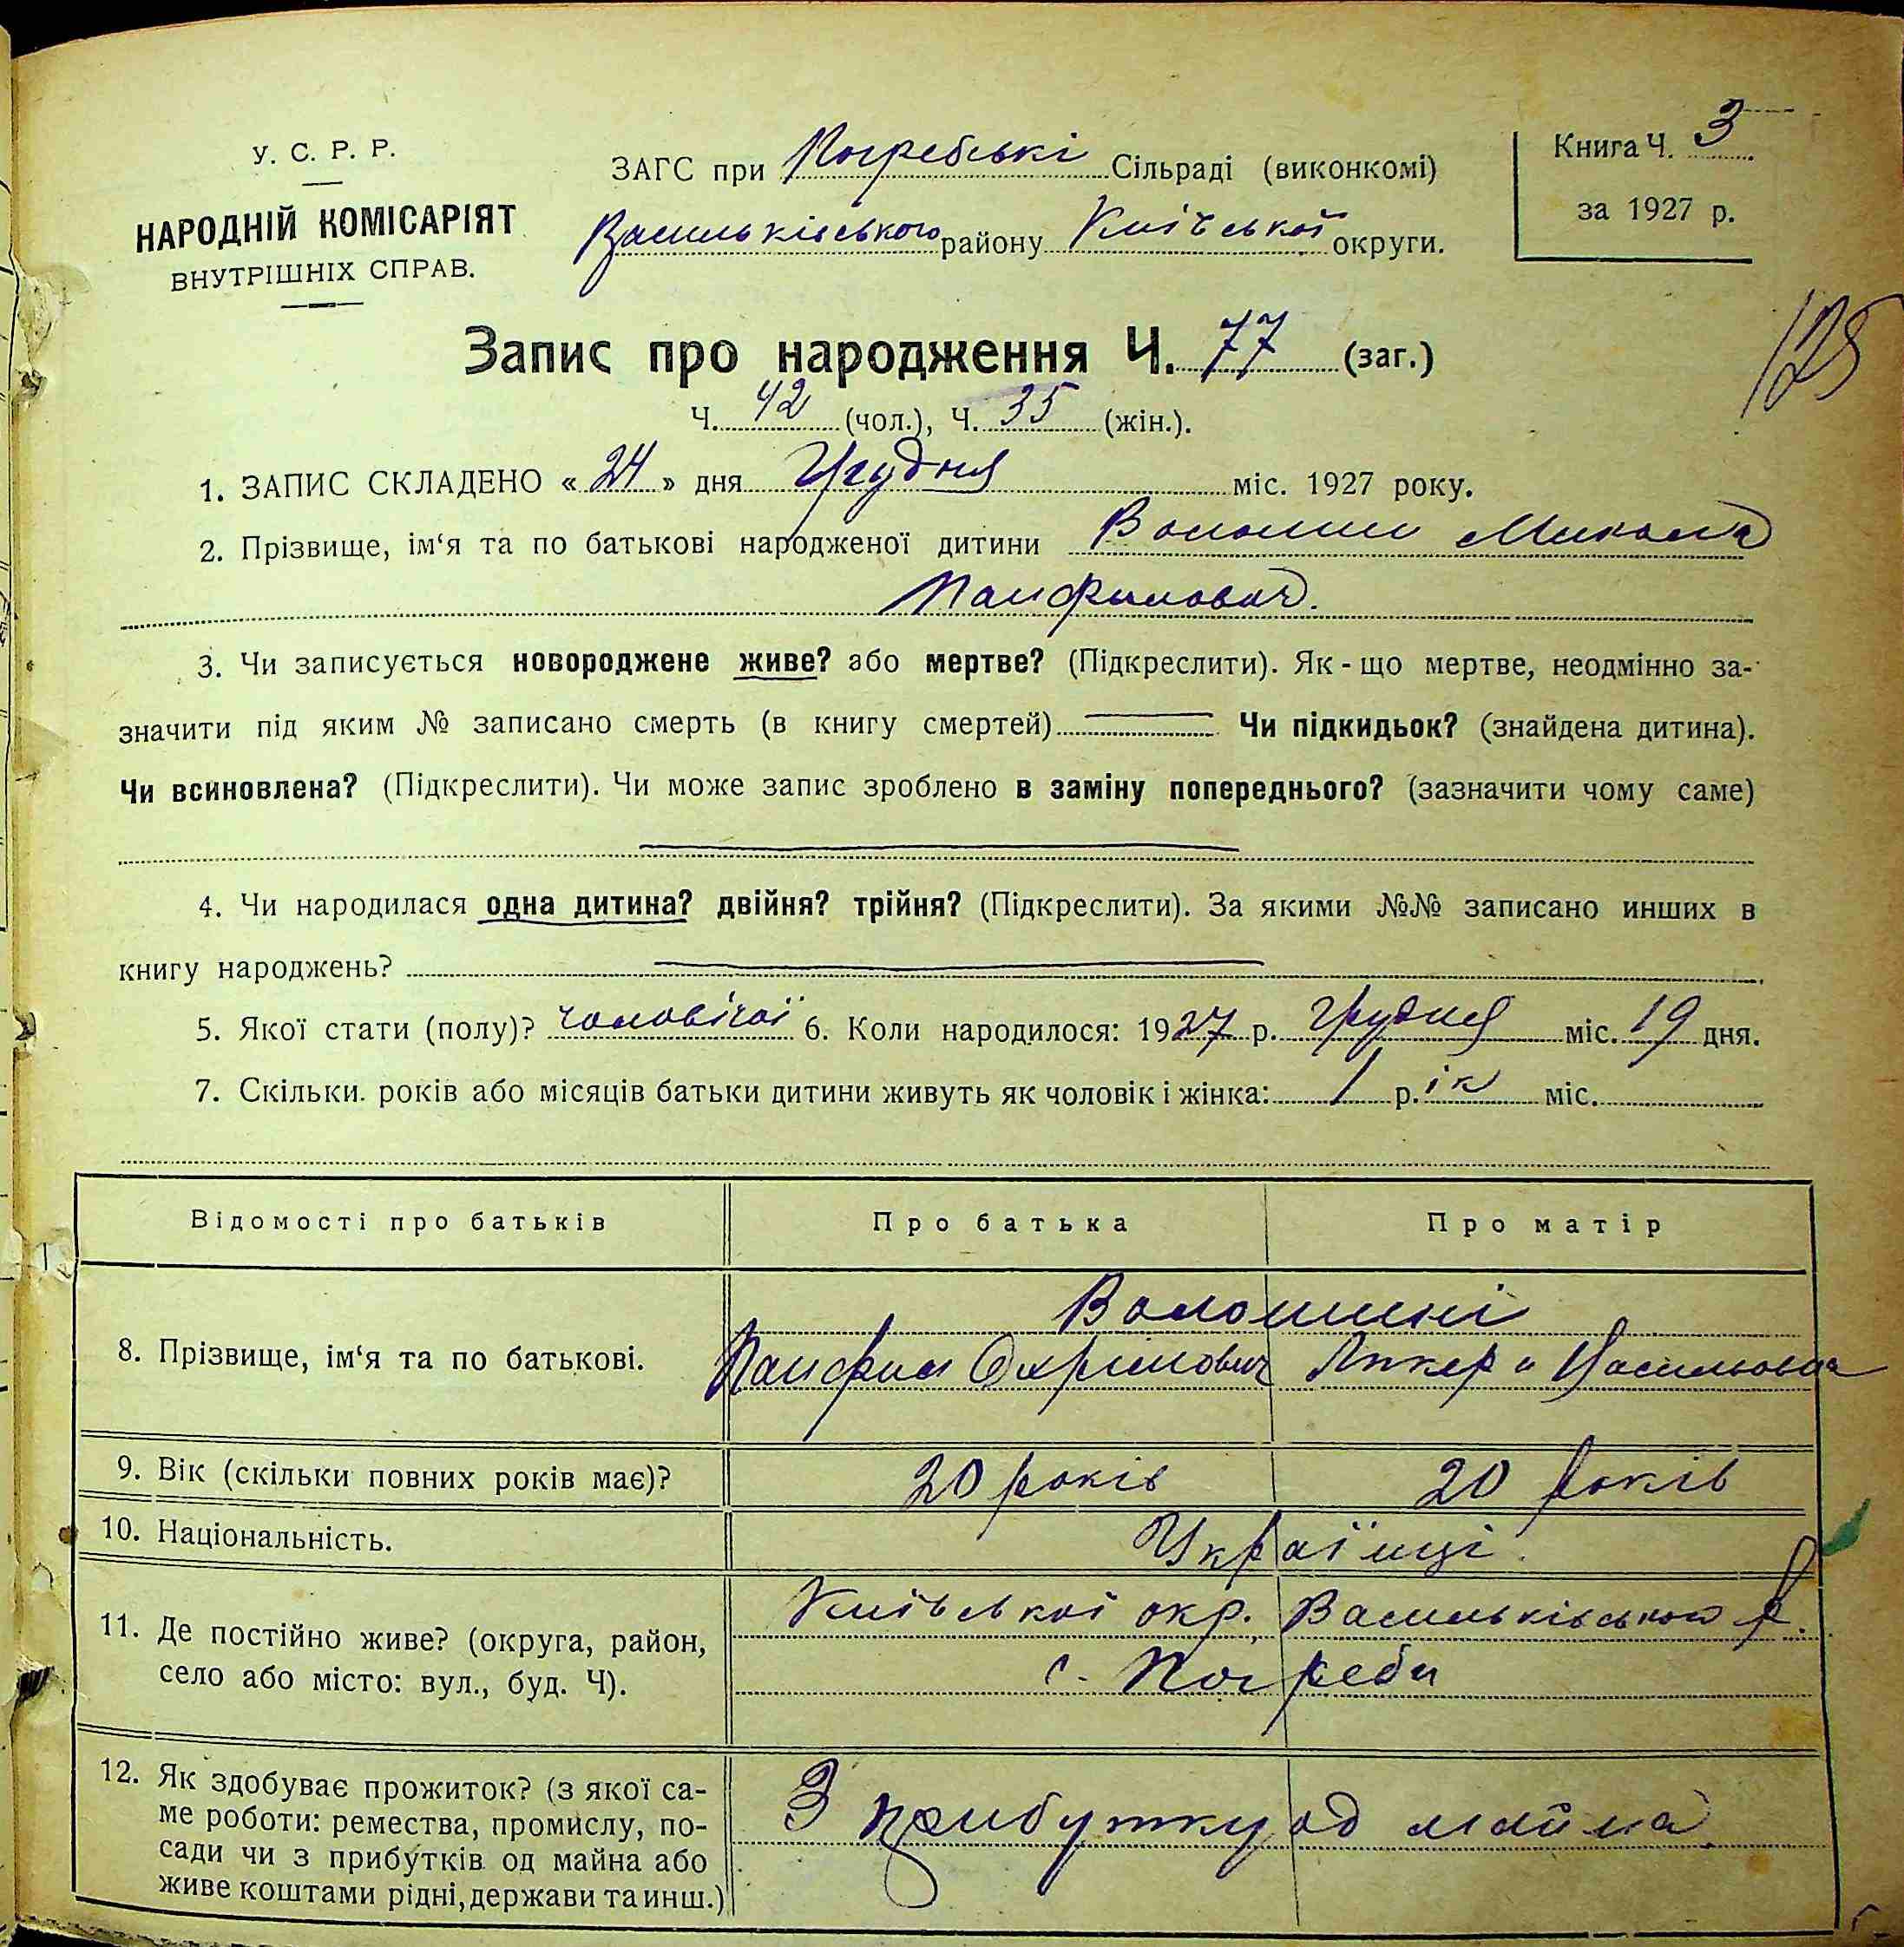 У. С. Р. Р.
НАРОДНІЙ КОМІСАРІЯТ
ВНУТРІШНІХ СПРАВ.
ЗАГС при Погребські Сільраді (виконкомі)
Васильківського району Київської округи.
Книга Ч. 3
за 1927 р.
125
Запис про народження Ч. 77 (заг.)
Ч. 42 (чол.), Ч. 35 (жін.).
1. ЗАПИС СКЛАДЕНО « 24 » дня Грудня міс. 1927 року.
2. Прізвище, ім‘я та по батькові народженої дитини Волошин Микола
Панфилович.
3. Чи записується новороджене живе? або мертве? (Підкреслити). Як - що мертве, неодмінно за-
значити під яким № записано смерть (в книгу смертей) Чи підкидьок? (знайдена дитина).
Чи всиновлена? (Підкреслити). Чи може запис зроблено в заміну попереднього? (зазначити чому саме)
4. Чи народилася одна дитина? двійня? трійня? (Підкреслити). За якими №№ записано инших в
книгу народжень?
5. Якої стати (полу)? чоловічої 6. Коли народилося: 1927 р. Грудня міс. 19 дня.
7. Скільки. років або місяців батьки дитини живуть як чоловік і жінка: 1 р.ік міс.
Відомості про батьків Про батька Про матір
Волошині
8. Прізвище, ім‘я та по батькові. Панфил Охрімович Ликера Васильовна
9. Вік (скільки повних років має)? 20 років 20 років
10. Національність. Українці.
11. Де постійно живе? (округа, район,
село або місто: вул., буд. Ч).
Київської окр. Васильківського р.
с. Погреби
12. Як здобуває прожиток? (з якої са-
ме роботи: ремества, промислу, по-
сади чи з прибутків од майна або
живе коштами рідні, держави та инш.)
З прибутку од майна.